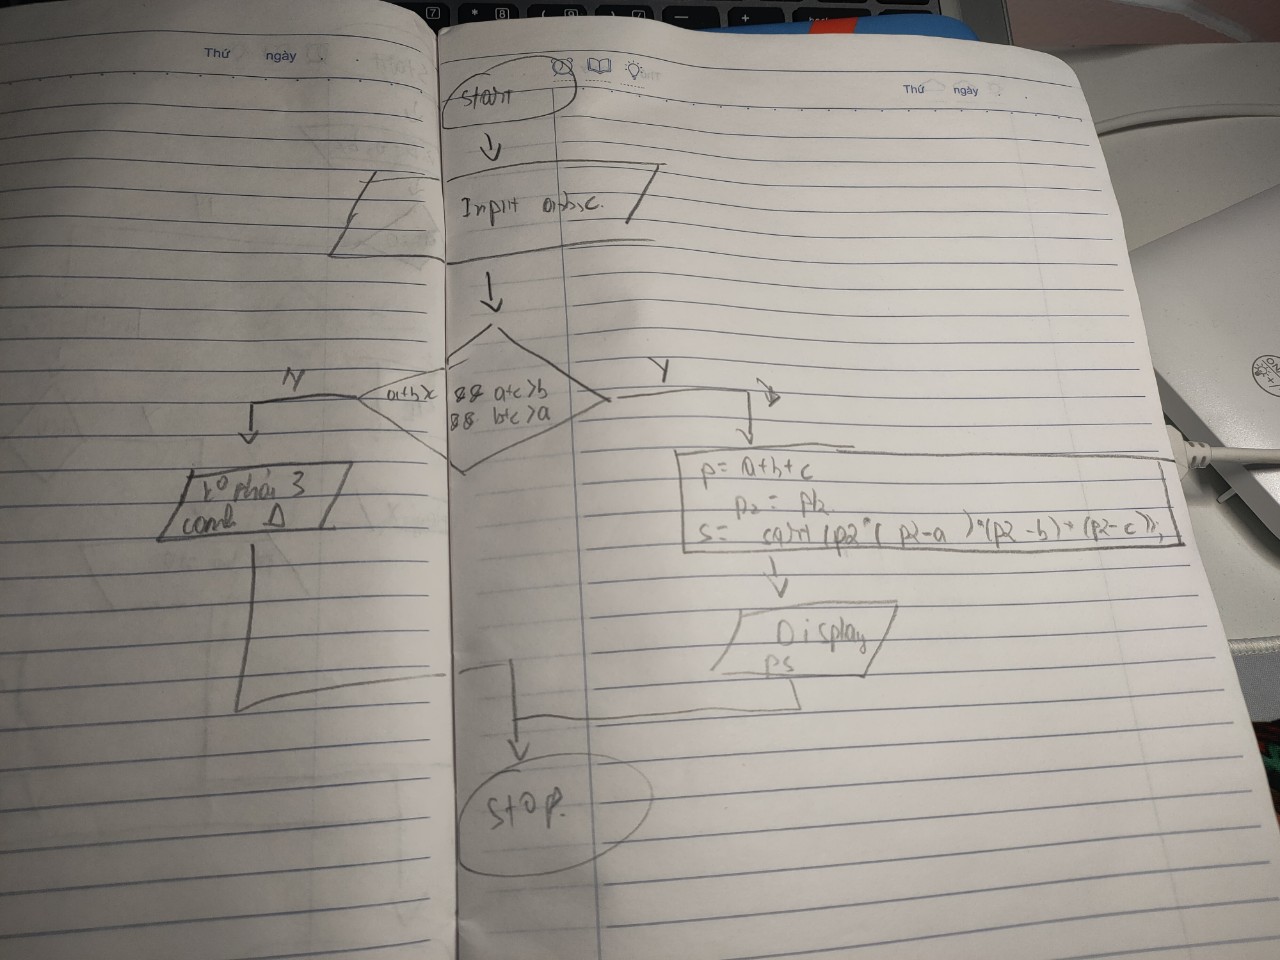 Thứ ngày
Thứ ngày
Start
Input a,b,c.
N
Y
a+b>c && a+c>b
&& b+c>a
K° phải 3
cạnh Δ
p = a+b+c
p2 = p/2
S = sqrt (p2*( p2-a )*(p2-b)*(p2-c));
Display
PS
Stop.